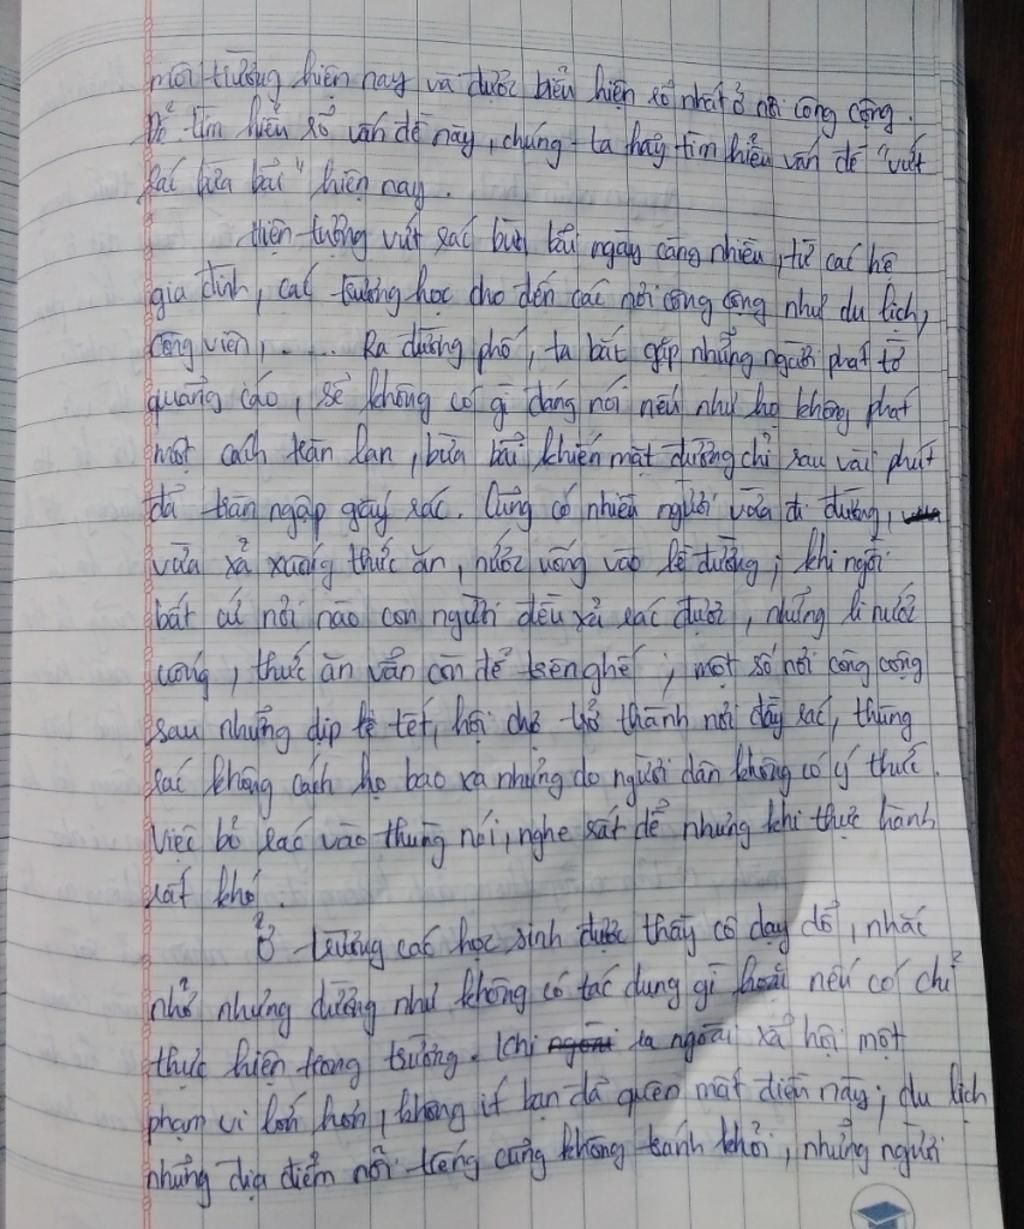 môi trường hiện nay và được biểu hiện rõ nhất ở nơi công cộng.
Để tìm hiểu rõ vấn đề này, chúng ta hãy tìm hiểu vấn đề "vứt
rác bừa bãi" hiện nay.
Hiện tượng vứt rác bừa bãi ngày càng nhiều, từ các hộ
gia đình, các trường học cho đến các nơi công cộng như du lịch,
công viên, .... Ra đường phố, ta bắt gặp những người phát tờ
quảng cáo, sẽ không có gì đáng nói nếu như họ không phát
một cách tràn lan, bừa bãi khiến mặt đường chỉ sau vài phút
đã tràn ngập giấy rác. Cũng có nhiều người vừa đi đường,
vừa xả xuống thức ăn, nước uống vào lề đường; khi ngồi
bất cứ nơi nào con người đều xả rác được, những li nước
uống, thức ăn vẫn còn để trên ghế; một số nơi công cộng
sau những dịp lễ tết, hội chợ trở thành nơi đầy rác, thùng
rác không cách họ bao xa nhưng do người dân không có ý thức.
Việc bỏ rác vào thùng nói, nghe rất dễ nhưng khi thực hành
rất khó.
Ở trường các học sinh được thầy cô dạy dỗ, nhắc
nhở nhưng dường như không có tác dụng gì hoặc nếu có chỉ
thực hiện trong trường. Khi ra ngoài xã hội một
phạm vi lớn hơn, không ít bạn đã quên mất điều này; du lịch
những địa điểm nổi tiếng cũng không tránh khỏi, những người